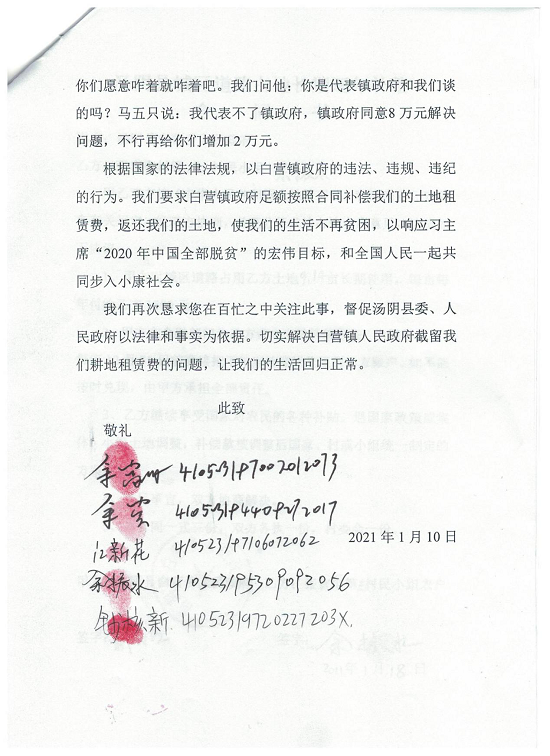 你们愿意咋着就咋着吧。我们问他：你是代表镇政府和我们谈
的吗？马五只说：我代表不了镇政府，镇政府同意8 万元解决
问题，不行再给你们增加 2 万元。
根据国家的法律法规，以白营镇政府的违法、违规、违纪
的行为。我们要求白营镇政府足额按照合同补偿我们的土地租
赁费，返还我们的土地，使我们的生活不再贫困，以响应习主
席“2020 年中国全部脱贫”的宏伟目标，和全国人民一起共
同步入小康社会。
我们再次恳求您在百忙之中关注此事，督促汤阴县委、人
民政府以法律和事实为依据。切实解决白营镇人民政府截留我
们耕地租赁费的问题，让我们的生活回归正常。
此致
敬礼
2021 年 1 月 10 日
江新花 410523197106072062
余振水 410523195309092056
新 41052319720227203X